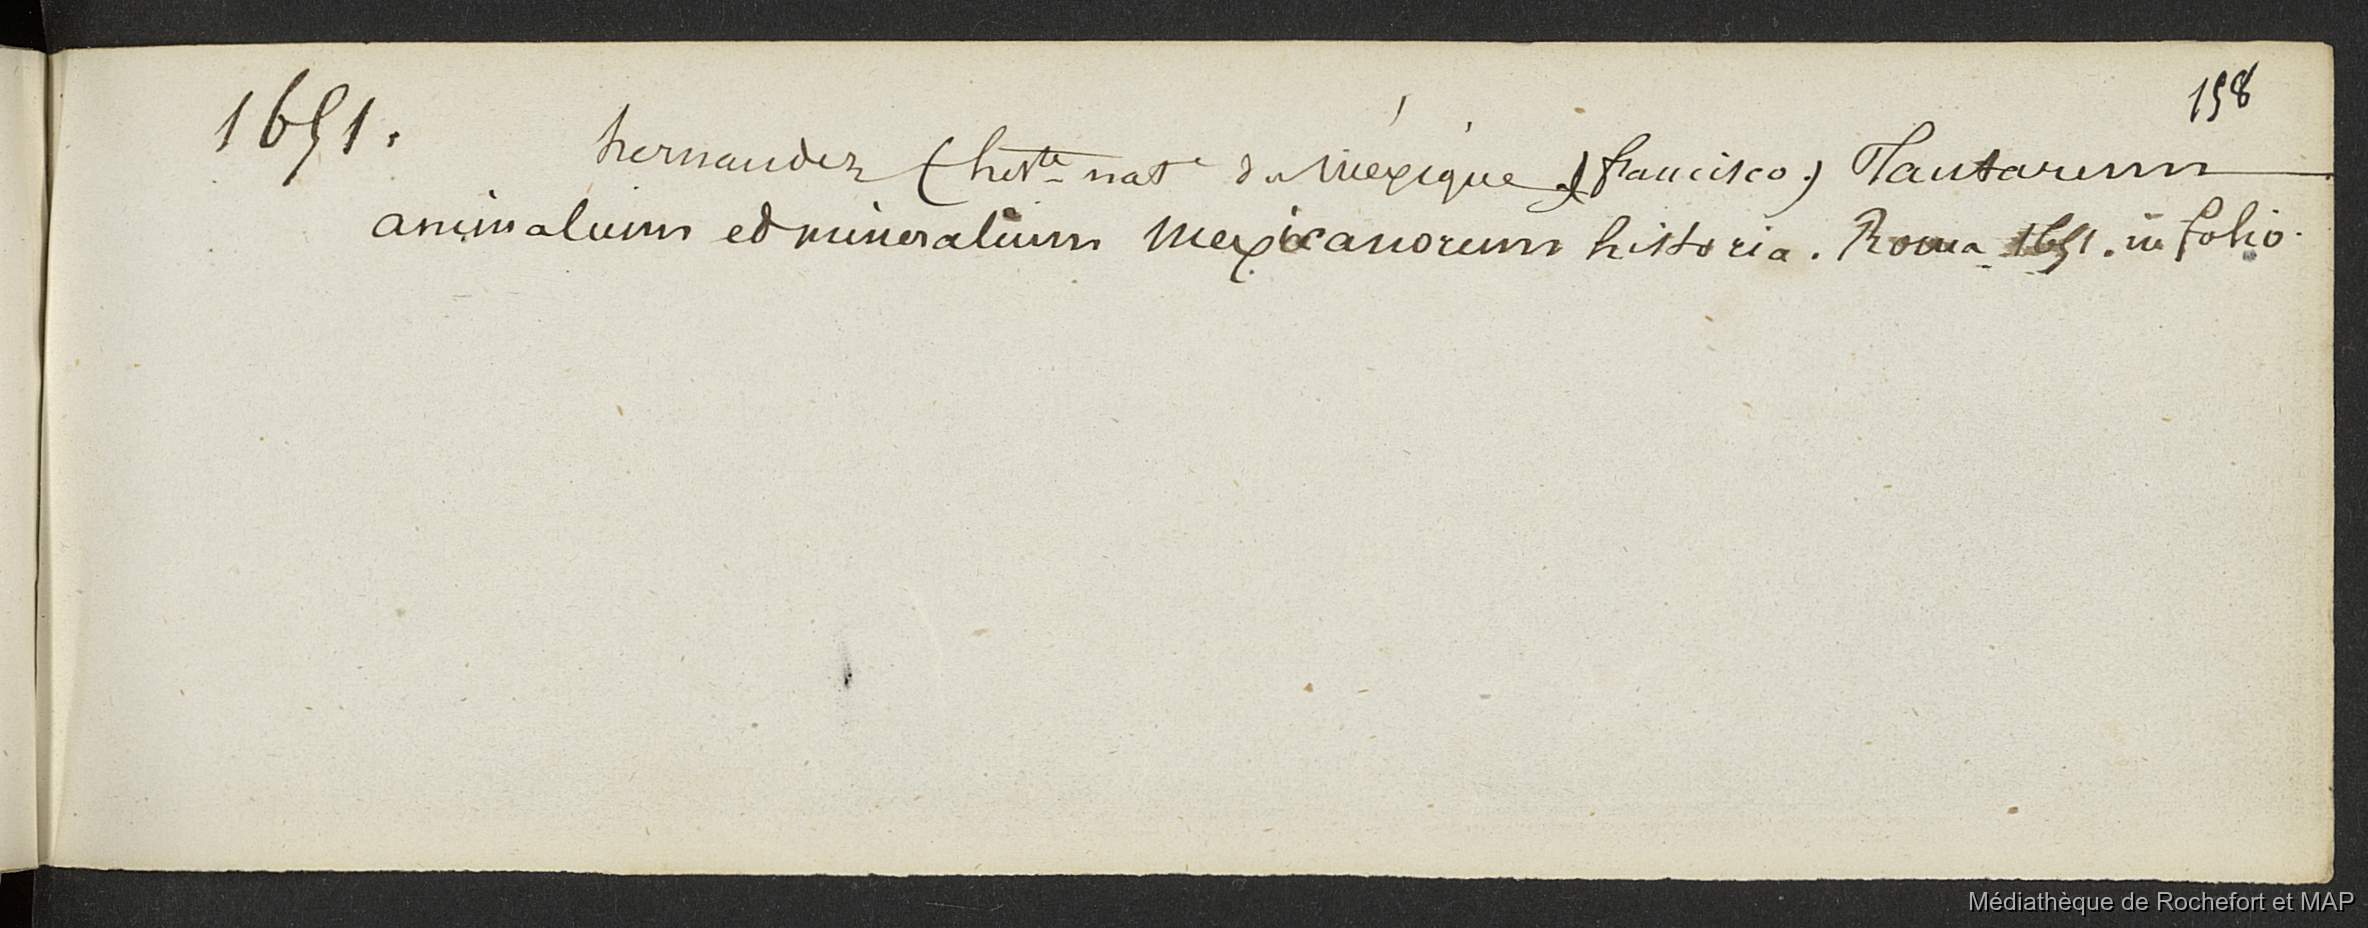 158
1651.
hernandez (histre nate du Méxique) (francisco.) Plantarum
animalium et mineralium Mexicanorum historia. Roma 1651. in folio.
Médiathèque de Rochefort et MAP